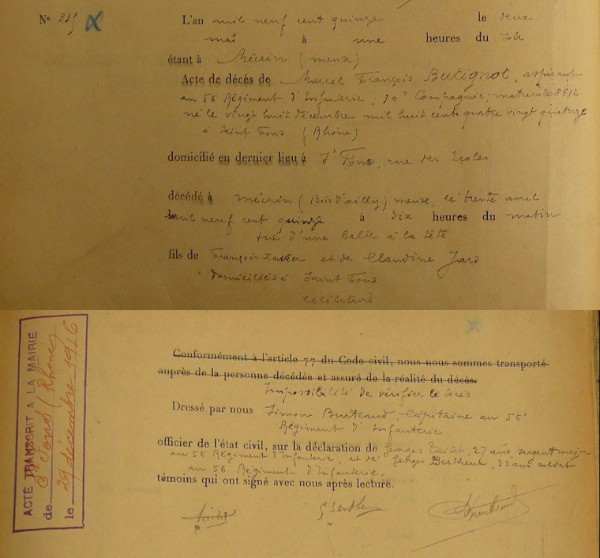 N° 225
L'an mil neuf cent quinze le deux
mai à une heures du soir
étant à Mécrin (meuse)
Acte de décès de Marcel François Butignot, aspirant
au 56 Régiment d'Infanterie, 10° Compagnie, matricule 8612
né le vingt huit décembre mil huit cent quatre vingt quatorze
à Saint Fons (Rhône)
domicilié en dernier lieu à St Fons, rue des Ecoles
décédé à Mécrin (Bois d'ailly) meuse, le trente avril
mil neuf cent quinze à dix heures du matin
tué d'une balle à la tête
fils de François Xavier et de Claudine Jars
domiciliés à Saint Fons
célibataire
Conformément à l'article 77 du Code civil, nous nous sommes transporté
auprès de la personne décédée et assuré de la réalité du décès.
Impossibilité de vérifier le décès
Dressé par nous Simon Capitaine au 56e
Régiment d'Infanterie
officier de l'état civil, sur la déclaration de Georges 27 ans, sergent major
au 56 Régiment d'Infanterie et de Georges Berthe 33 ans
au 56 Régiment d'Infanterie.
témoins qui ont signé avec nous après lecture.
ACTE TRANSCRIT A LA MAIRIE
de St Fons (Rhône)
le 29 décembre 1916